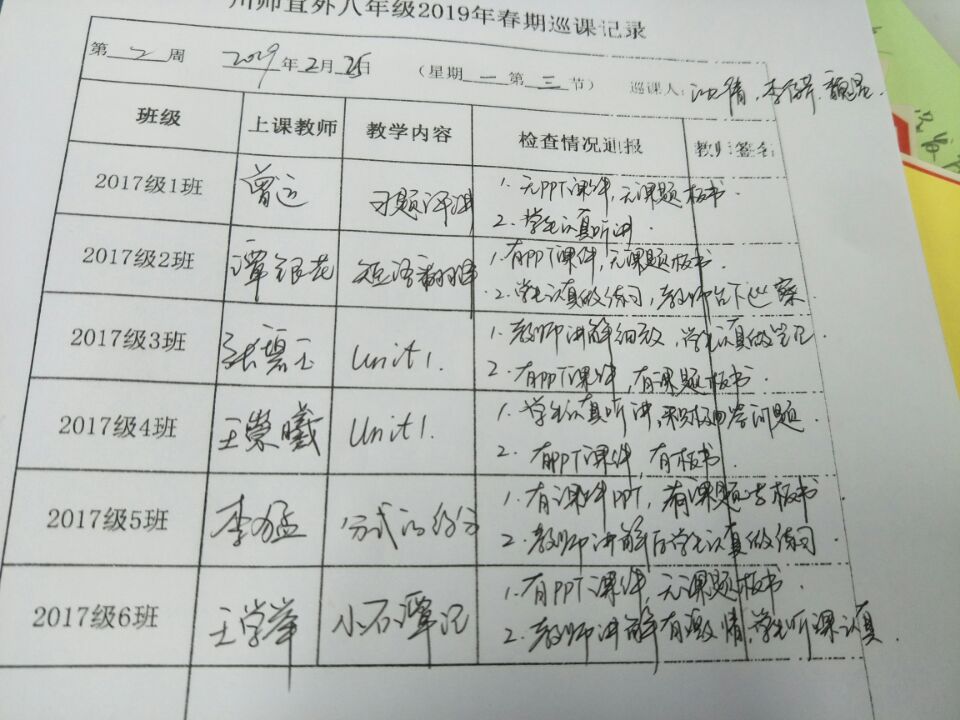 川师宜外八年级2019年春期巡课记录
第 2 周 2019年2月25日 （星期 一 第 三 节） 巡课人: 沈倩.李
班级 上课教师 教学内容 检查情况通报 教师签名
2017级1班 曾 习题评讲 1.无PPT课件,无课题板书.
2.学生认真听讲.
2017级2班 覃银花 短语翻译 1.有PPT课件,无课题板书.
2.学生认真做练习,教师台下巡察
2017级3班 张碧玉 Unit1. 1.教师讲解细致,学生认真做笔记
2.有PPT课件,有课题板书.
2017级4班 王崇曦 Unit1. 1.学生认真听讲,积极回答问题
2.有PPT课件,有板书.
2017级5班 李猛 分式的约分 1.有课件PPT,有课题与板书
2.教师讲解后学生认真做练习
2017级6班 王学举 小石潭记 1.有PPT课件,无课题板书.
2.教师讲解有激情,学生听课认真.